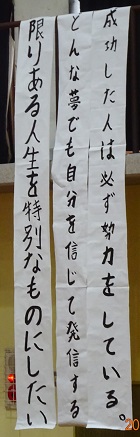 成功した人は必ず努力をしている。
どんな夢でも自分を信じて発信する
限りある人生を特別なものにしたい
20